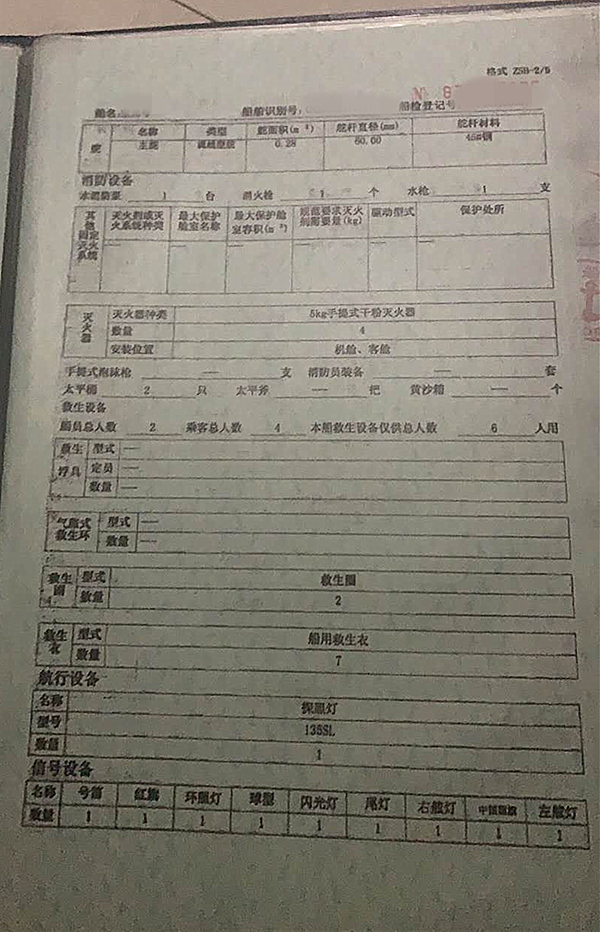 格式 ZSB-2/5
№ 8
船名 船舶识别号: 船检登记号
舵 名称 类型 舵面积(m²) 舵杆直径(mm) 舵杆材料
主舵 流线型舵 0.28 60.00 45#钢
消防设备
水消防泵 1 台 消火栓 1 个 水枪 1 支
其他固定灭火系统 灭火剂或灭火系统种类 最大保护舱室名称 最大保护舱室容积(m³) 规范要求灭火剂测量量(kg) 驱动型式 保护处所
— — — — — —
灭火器 灭火器种类 5kg手提式干粉灭火器
数量 4
安装位置 机舱、客舱
手提式泡沫枪 — 支 消防员装备 — 套
太平桶 2 只 太平斧 — 把 黄沙箱 — 个
救生设备
船员总人数 2 乘客总人数 4 本船救生设备仅供总人数 6 人用
救生浮具 型式 —
定员 —
数量 —
气胀式救生环 型式 —
数量 —
救生圈 型式 救生圈
数量 2
救生衣 型式 船用救生衣
数量 7
航行设备
名称 探照灯
型号 135SL
数量 1
信号设备
名称 号笛 红旗 环照灯 球型 闪光灯 尾灯 右舷灯 中国国旗 左舷灯
数量 1 1 1 1 1 1 1 1 1